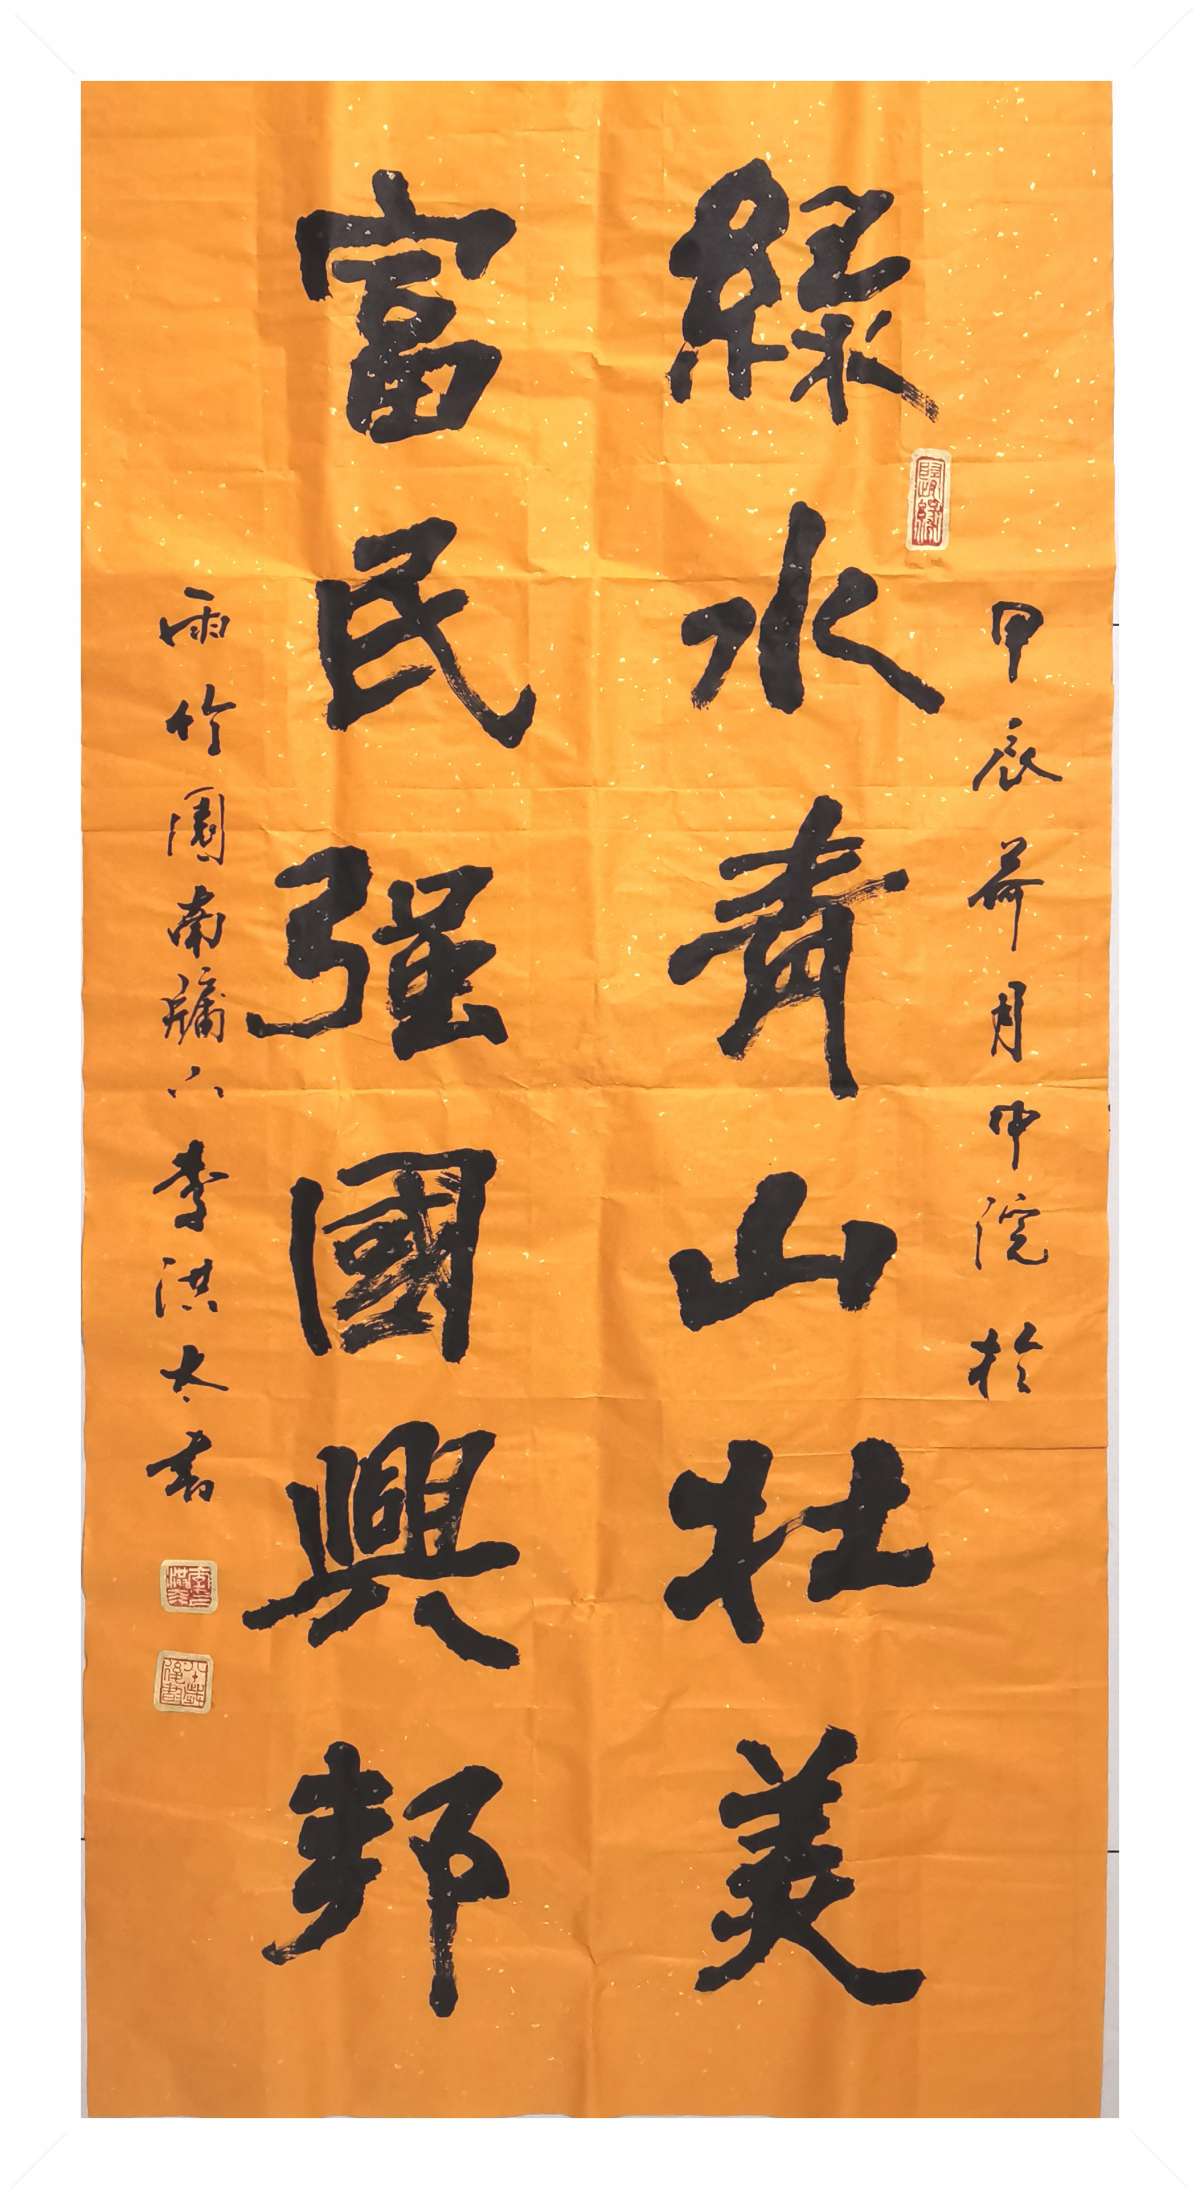 甲辰荷月中院於
綠水青山壯美
富民强國興邦
雨竹園南牖下李洪太書